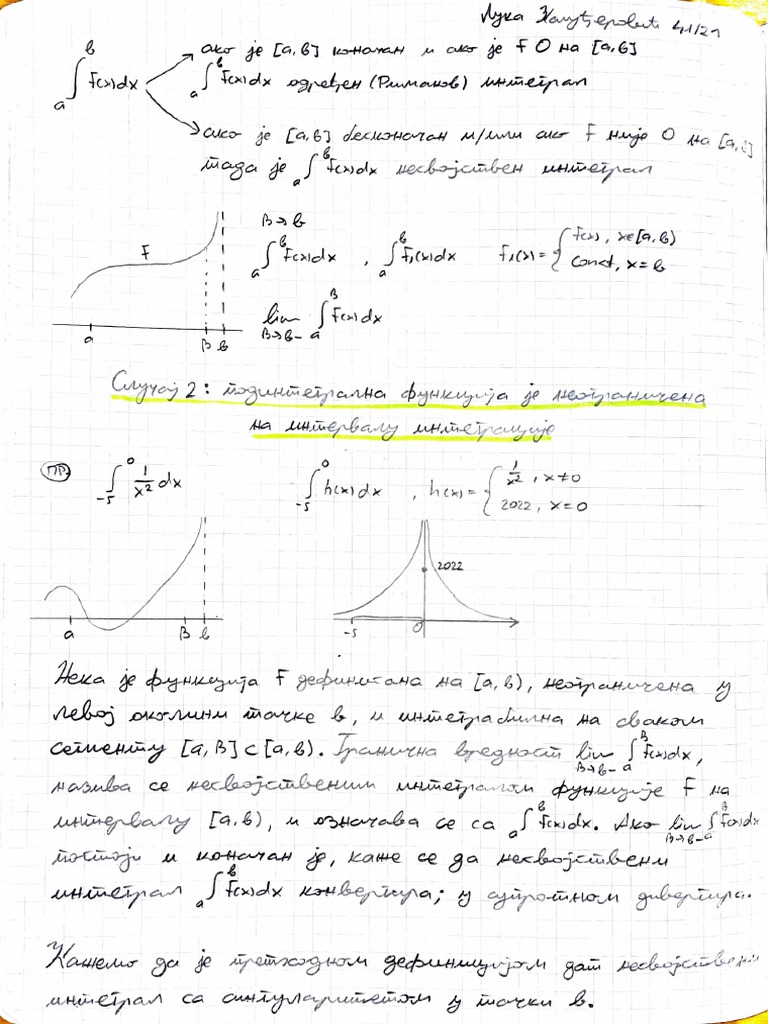 Лука 41/21
ако је [a,b] коначан и ако је f O на [a,b]
∫_a^b f(x)dx
∫_a^b f(x)dx одређен (Риманов) интеграл
ако је [a,b] бесконачан и/или ако f није O на [a,b]
тада је ∫_a^b f(x)dx несвојствен интеграл
β→b
f
∫_a^b f(x)dx , ∫_a^b f₁(x)dx f₁(x)={ f(x), x∈[a,b)
const, x=b
lim_{β→b-} ∫_a^β f(x)dx
a β b
Случај 2: подинтегрална функција је неограничена
на интервалу интеграције
ПР. ∫_{-5}^0 1/x² dx ∫_{-5}^0 h(x)dx , h(x)={ 1/x², x≠0
2022, x=0
2022
a β b -5 0
Нека је функција f дефинисана на [a,b), неограничена у
левој околини тачке b, и интеграбилна на сваком
сегменту [a,β]⊂[a,b). Гранична вредност lim_{β→b-} ∫_a^β f(x)dx,
назива се несвојственим интегралом функције f на
интервалу [a,b), и означава се са ∫_a^b f(x)dx. Ако lim_{β→b-} ∫_a^β f(x)dx
постоји и коначан је, каже се да несвојствени
интеграл ∫_a^b f(x)dx конвергира; у супротном дивергира.
Кажемо да је претходном дефиницијом дат несвојствени
интеграл са сингуларитетом у тачки b.